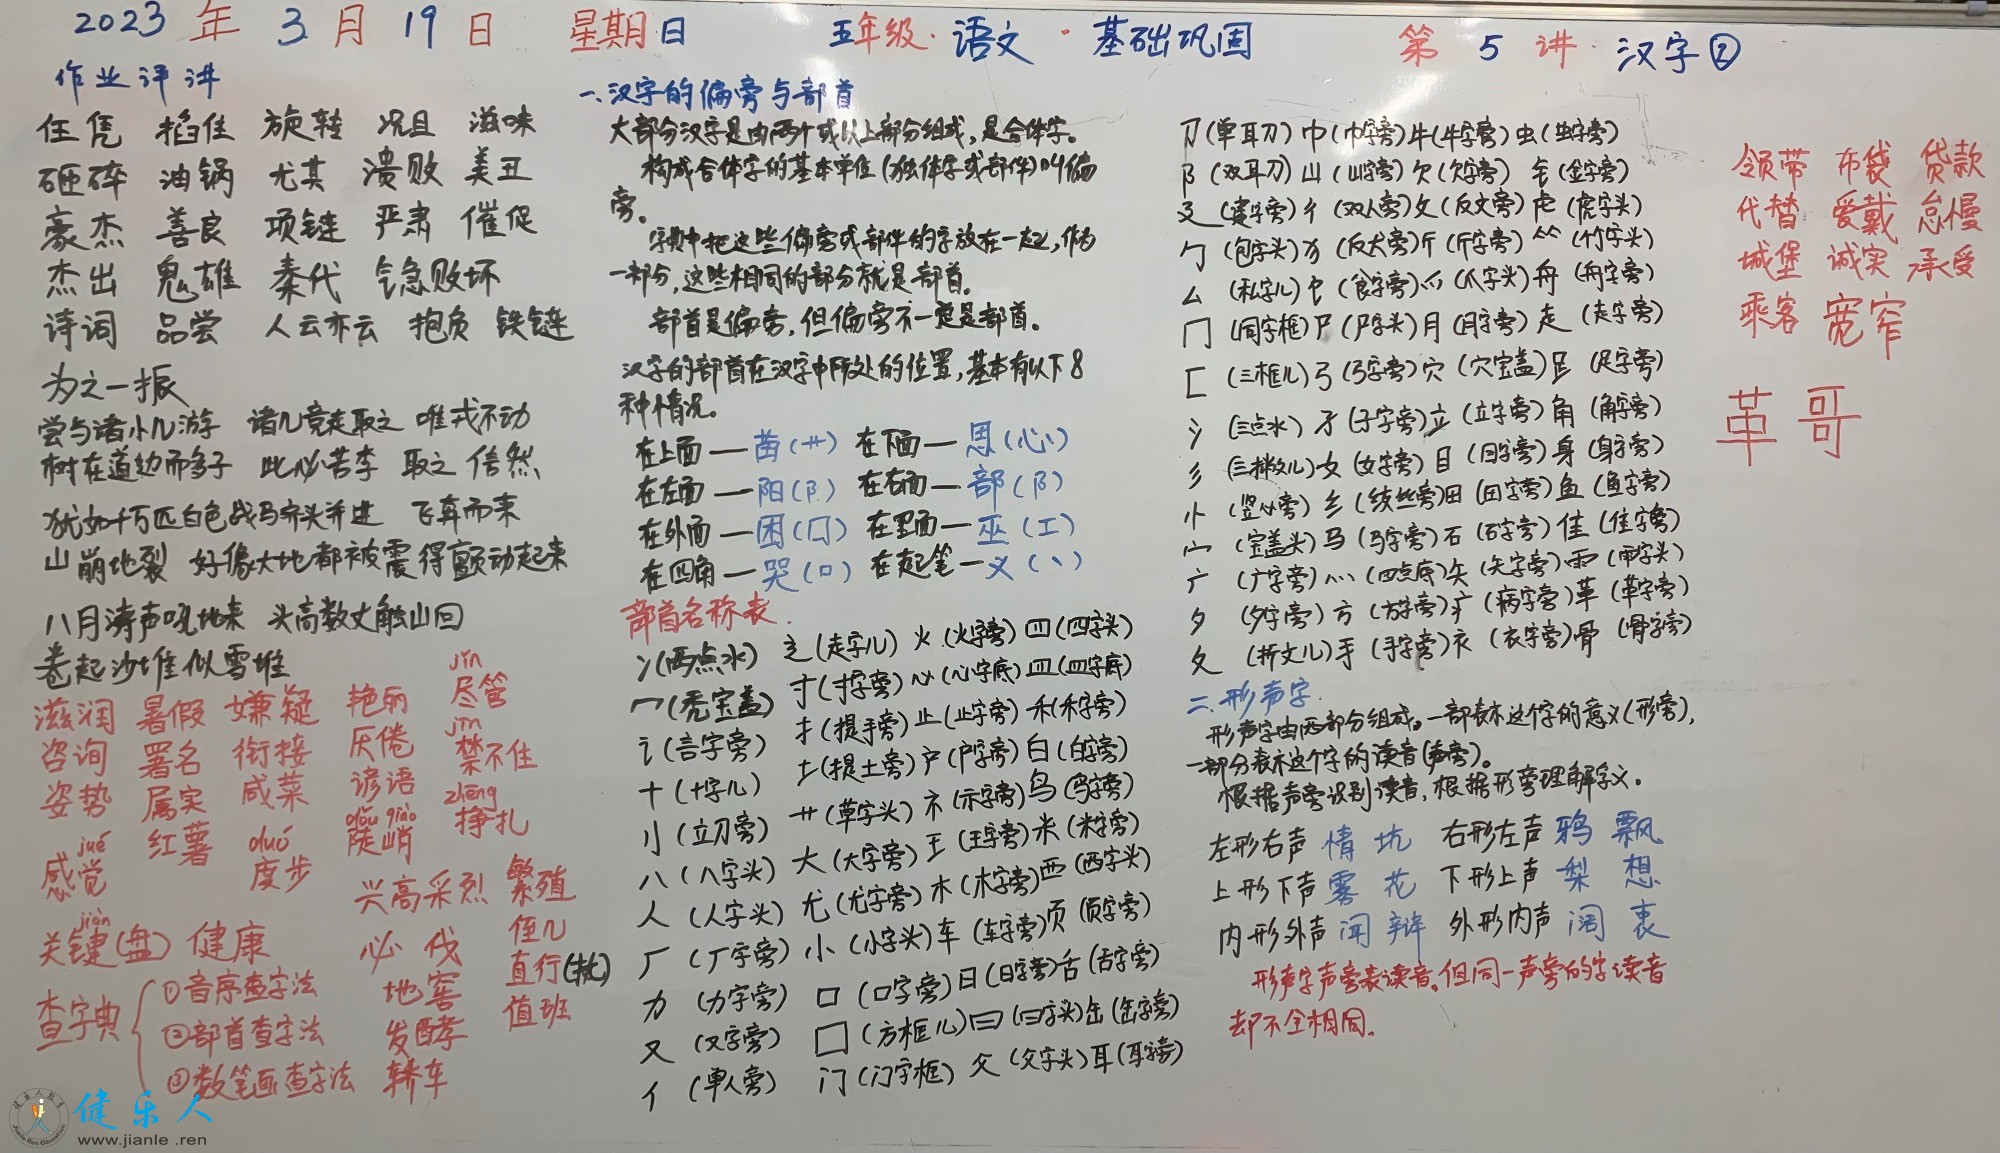 2023年3月19日 星期日 五年级·语文·基础巩固 第5讲·汉字②
作业评讲
任凭 掐住 旋转 况且 滋味
砸碎 油锅 尤其 溃败 美丑
豪杰 善良 项链 严肃 催促
杰出 鬼雄 秦代 气急败坏
诗词 品尝 人云亦云 抱负 铁链
为之一振
尝与诸小儿游 诸儿竞走取之 唯戎不动
树在道边而多子 此必苦李 取之信然
犹如千万匹白色战马齐头并进 飞奔而来
山崩地裂 好像大地都被震得颤动起来
八月涛声吼地来 头高数丈触山回
卷起沙堆似雪堆
滋润 暑假 嫌疑 艳丽 jǐn 尽管
咨询 署名 衔接 厌倦 jīn 禁不住
姿势 属实 咸菜 谚语 zhēng 挣扎
jué 感觉 红薯 duó 度步 dǒu qiào 陡峭
兴高采烈 繁殖
jiàn 关键(盘) 健康 必 伐 侄儿
地窖 直行
发酵 值班
轿车
查字典
①音序查字法
②部首查字法
③数笔画查字法
一、汉字的偏旁与部首
大部分汉字是由两个或以上部分组成,是合体字。
构成合体字的基本单位(独体字或部件)叫偏
旁。
字典中把这些偏旁或部件的字放在一起,作为
一部分,这些相同的部分就是部首。
部首是偏旁,但偏旁不一定是部首。
汉字的部首在汉字中所处的位置,基本有以下8
种情况。
在上面—苗(艹) 在下面—思(心)
在左面—阳(阝) 在右面—部(阝)
在外面—困(囗) 在里面—巫(工)
在四角—哭(口) 在起笔—义(丶)
部首名称表
冫(两点水) 辶(走字儿) 火(火字旁) 罒(四字头)
冖(秃宝盖) 寸(寸字旁) 心(心字底) 皿(四字底)
讠(言字旁) 扌(提手旁) 止(止字旁) 禾(禾字旁)
十(十字儿) 土(提土旁) 户(户字旁) 白(白字旁)
刂(立刀旁) 艹(草字头) 礻(示字旁) 鸟(鸟字旁)
八(八字头) 大(大字旁) 王(王字旁) 米(米字旁)
人(人字头) 尤(尤字旁) 木(木字旁) 西(西字头)
厂(厂字旁) 小(小字头) 车(车字旁) 页(页字旁)
力(力字旁) 口(口字旁) 日(日字旁) 舌(舌字旁)
又(又字旁) 囗(方框儿) 曰(曰字头) 缶(缶字旁)
亻(单人旁) 门(门字框) 父(父字头) 耳(耳字旁)
刀(单耳刀) 巾(巾字旁) 牛(牛字旁) 虫(虫字旁)
阝(双耳刀) 山(山字旁) 欠(欠字旁) 钅(金字旁)
廴(建字旁) 彳(双人旁) 攵(反文旁) 虍(虎字头)
勹(包字头) 犭(反犬旁) 斤(斤字旁) ⺮(竹字头)
厶(私字儿) 饣(食字旁) 爫(爪字头) 舟(舟字旁)
冂(同字框) 尸(尸字头) 月(月字旁) 走(走字旁)
匚(三框儿) 弓(弓字旁) 穴(穴宝盖) 𧾷(足字旁)
氵(三点水) 子(子字旁) 立(立字旁) 角(角字旁)
彡(三撇儿) 女(女字旁) 目(目字旁) 身(身字旁)
忄(竖心旁) 纟(绞丝旁) 田(田字旁) 鱼(鱼字旁)
宀(宝盖头) 马(马字旁) 石(石字旁) 隹(隹字旁)
广(广字旁) 灬(四点底) 矢(矢字旁) 雨(雨字头)
夕(夕字旁) 方(方字旁) 疒(病字旁) 革(革字旁)
夂(折文儿) 手(手字旁) 衣(衣字旁) 骨(骨字旁)
二、形声字.
形声字由两部分组成。一部表示这个字的意义(形旁),
一部分表示这个字的读音(声旁)。
根据声旁识别读音,根据形旁理解字义。
左形右声 情 坑 右形左声 鸦 飘
上形下声 雾 花 下形上声 梨 想
内形外声 闻 辩 外形内声 阔 衷
形声字声旁表读音。但同一声旁的字读音
却不全相同。
领带 布袋 贷款
代替 爱戴 怠慢
城堡 诚实 承受
乘客 宽窄
革 哥
健乐人
www.jianle.ren